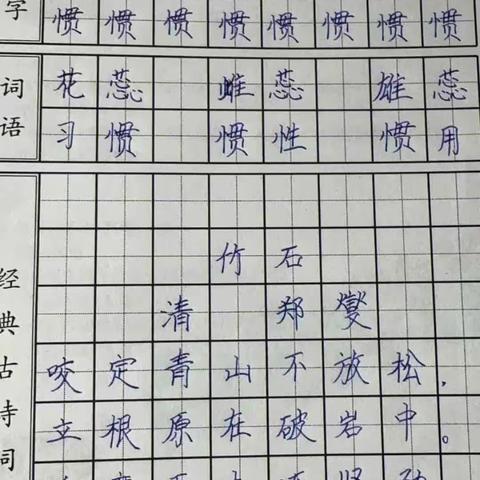 字 惯 惯 惯 惯 惯 惯 惯 惯
词语
花 蕊 雌 蕊 雄 蕊
习 惯 惯 性 惯 用
经典古诗词
竹 石
清 郑 燮
咬 定 青 山 不 放 松，
立 根 原 在 破 岩 中。